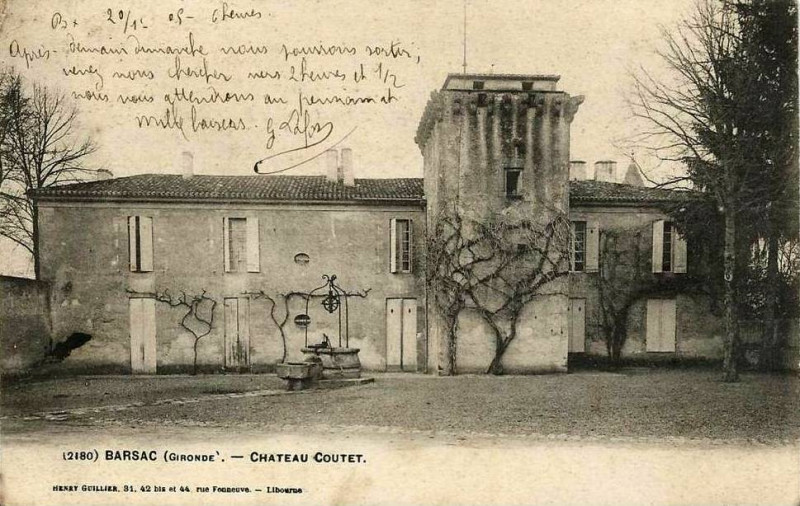 Bx 20/15 05 - 6 heures.
Après-demain dimanche nous pourrons sortir,
venez nous chercher vers 2 heures et 1/2
nous vous attendrons au pensionnat
mille baisers.
(2180) BARSAC (GIRONDE'. — CHATEAU COUTET.
HENRY GUILLIER, 31, 42 bis et 44, rue Fonneuve. — Libourne